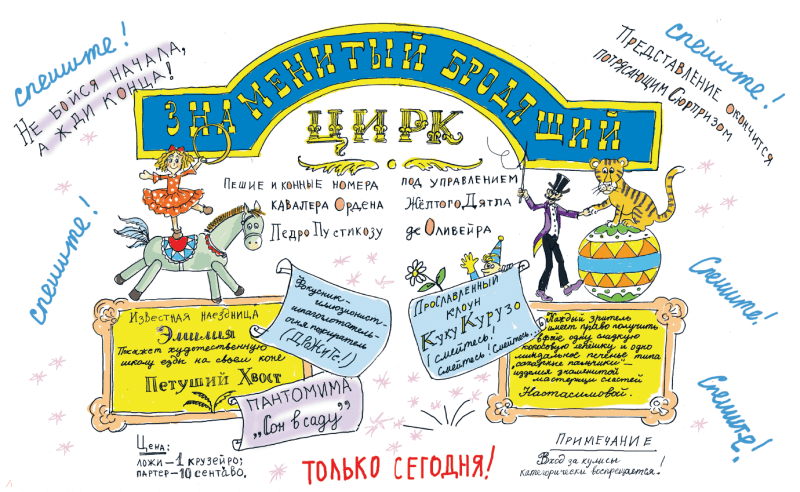 спешите!
Не бойся начала,
а жди конца!
спешите!
Представление окончится
потрясающим сюрпризом
ЗНАМЕНИТЫЙ БРОДЯЩИЙ
ЦИРК
Пешие и конные номера под управлением
кавалера Ордена Жёлтого Дятла
Педро Пустикозу де Оливейра
спешите!
Спешите!
Спешите!
Известная наездница
Эмилия
Покажет художественную
школу езды на своем коне
Петуший Хвост
Фкусник-
иллюзионист-
шпагоглотатель-
огня пожиратель
(Держите!)
Прославленный
клоун
Куку Курузо
(смейтесь!
Смейтесь! Смейтесь...
Каждый зритель
имеет право получить
в фойе одну сладкую
кокосовую лепёшку и одно
миндальное печенье типа
„сахарные пальчики"-
изделия знаменитой
мастерицы сластей
Настасимовой.
ПАНТОМИМА
„Сон в саду"
Цена:
ложи-1 крузейро;
партер-10 сентаво.
ТОЛЬКО СЕГОДНЯ!
Примечание
Вход за кулисы
категорически воспрещается!